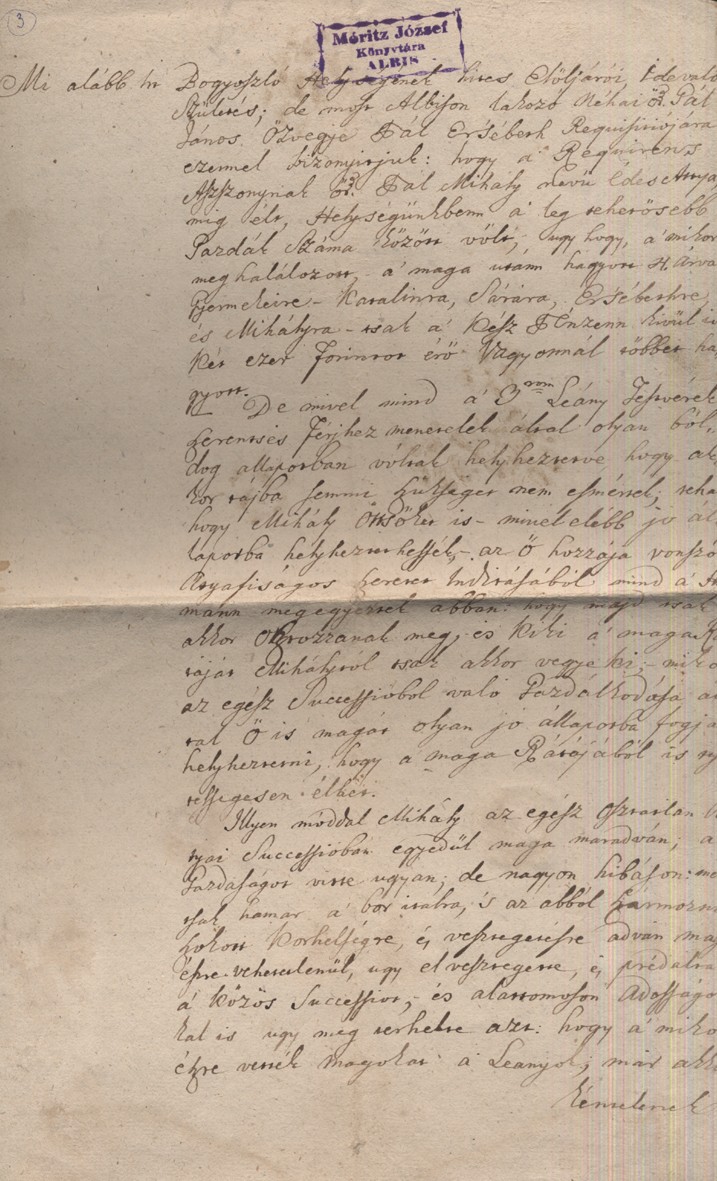 3
Móritz József
Könyvtára
ALBIS
Mi alább ir Bogyoszló Helységének hites Elöljárói, Idevaló
Születés; de most Albison lakozó Néhai ör. Pál
János özvegye Pál Ersébeth Requisitiójára
ezennel bizonyitjuk: hogy a' Requirens
Aszszonynak ör. Pál Mihály nevü édes Attya,
mig élt, Helységünkbenn a' leg tehetösebb
Gazdák Száma között vólt, úgy hogy, a' mikor
meghalálozott, a' maga utánn hagyott 4. árva
Gyermekeire – Katalinra, Sárára, Ersébethre,
és Mihályra – tsak a' kész Pénzenn kivül is
két ezer forintot érö Vagyonnál többet ha
gyott.
De mivel mind a' 3 rom Leány Testvérek
szerentsés Férjhez menetelek által olyan bol,
dog állapotban vóltak helyheztetve hogy ak
kor tájba semmi szükséget nem esmértek; teha
hogy Mihály Öttsöket is – minél elébb jo ál
lapotba helyheztethessék, – az Ö hozzája vonszó
Atyafiságos szeretet Inditásából mind a'
mann megegyeztek abban: hogy majd tsak
akkor osztozzanak meg, és kiki a' maga Rá
táját Mihálytól tsak akkor vegye ki, – miko
az egész Successióból való Gazdálkodása ál
tal Ö is magát olyan jó állapotba fogja
helyheztetni, hogy a' maga Rátájából is
tességesen élhet.
Illyen móddal Mihály az egész osztatlan
tyai Successióban egyedül maga maradván; a'
Gazdaságot vitte ugyan; de nagyon hibáson: me
tsak hamar a' bor italra, 's az abból származni
szokott korhelységre, és vesztegetésre adván mag
észre vehetetlenül, ugy elvesztegette, és prédálta
a' közös Successiot, – és alattomoson adósságo
kal is ugy meg terhelte azt: hogy a' miko
észre vették magokat a' Leányok, már akk